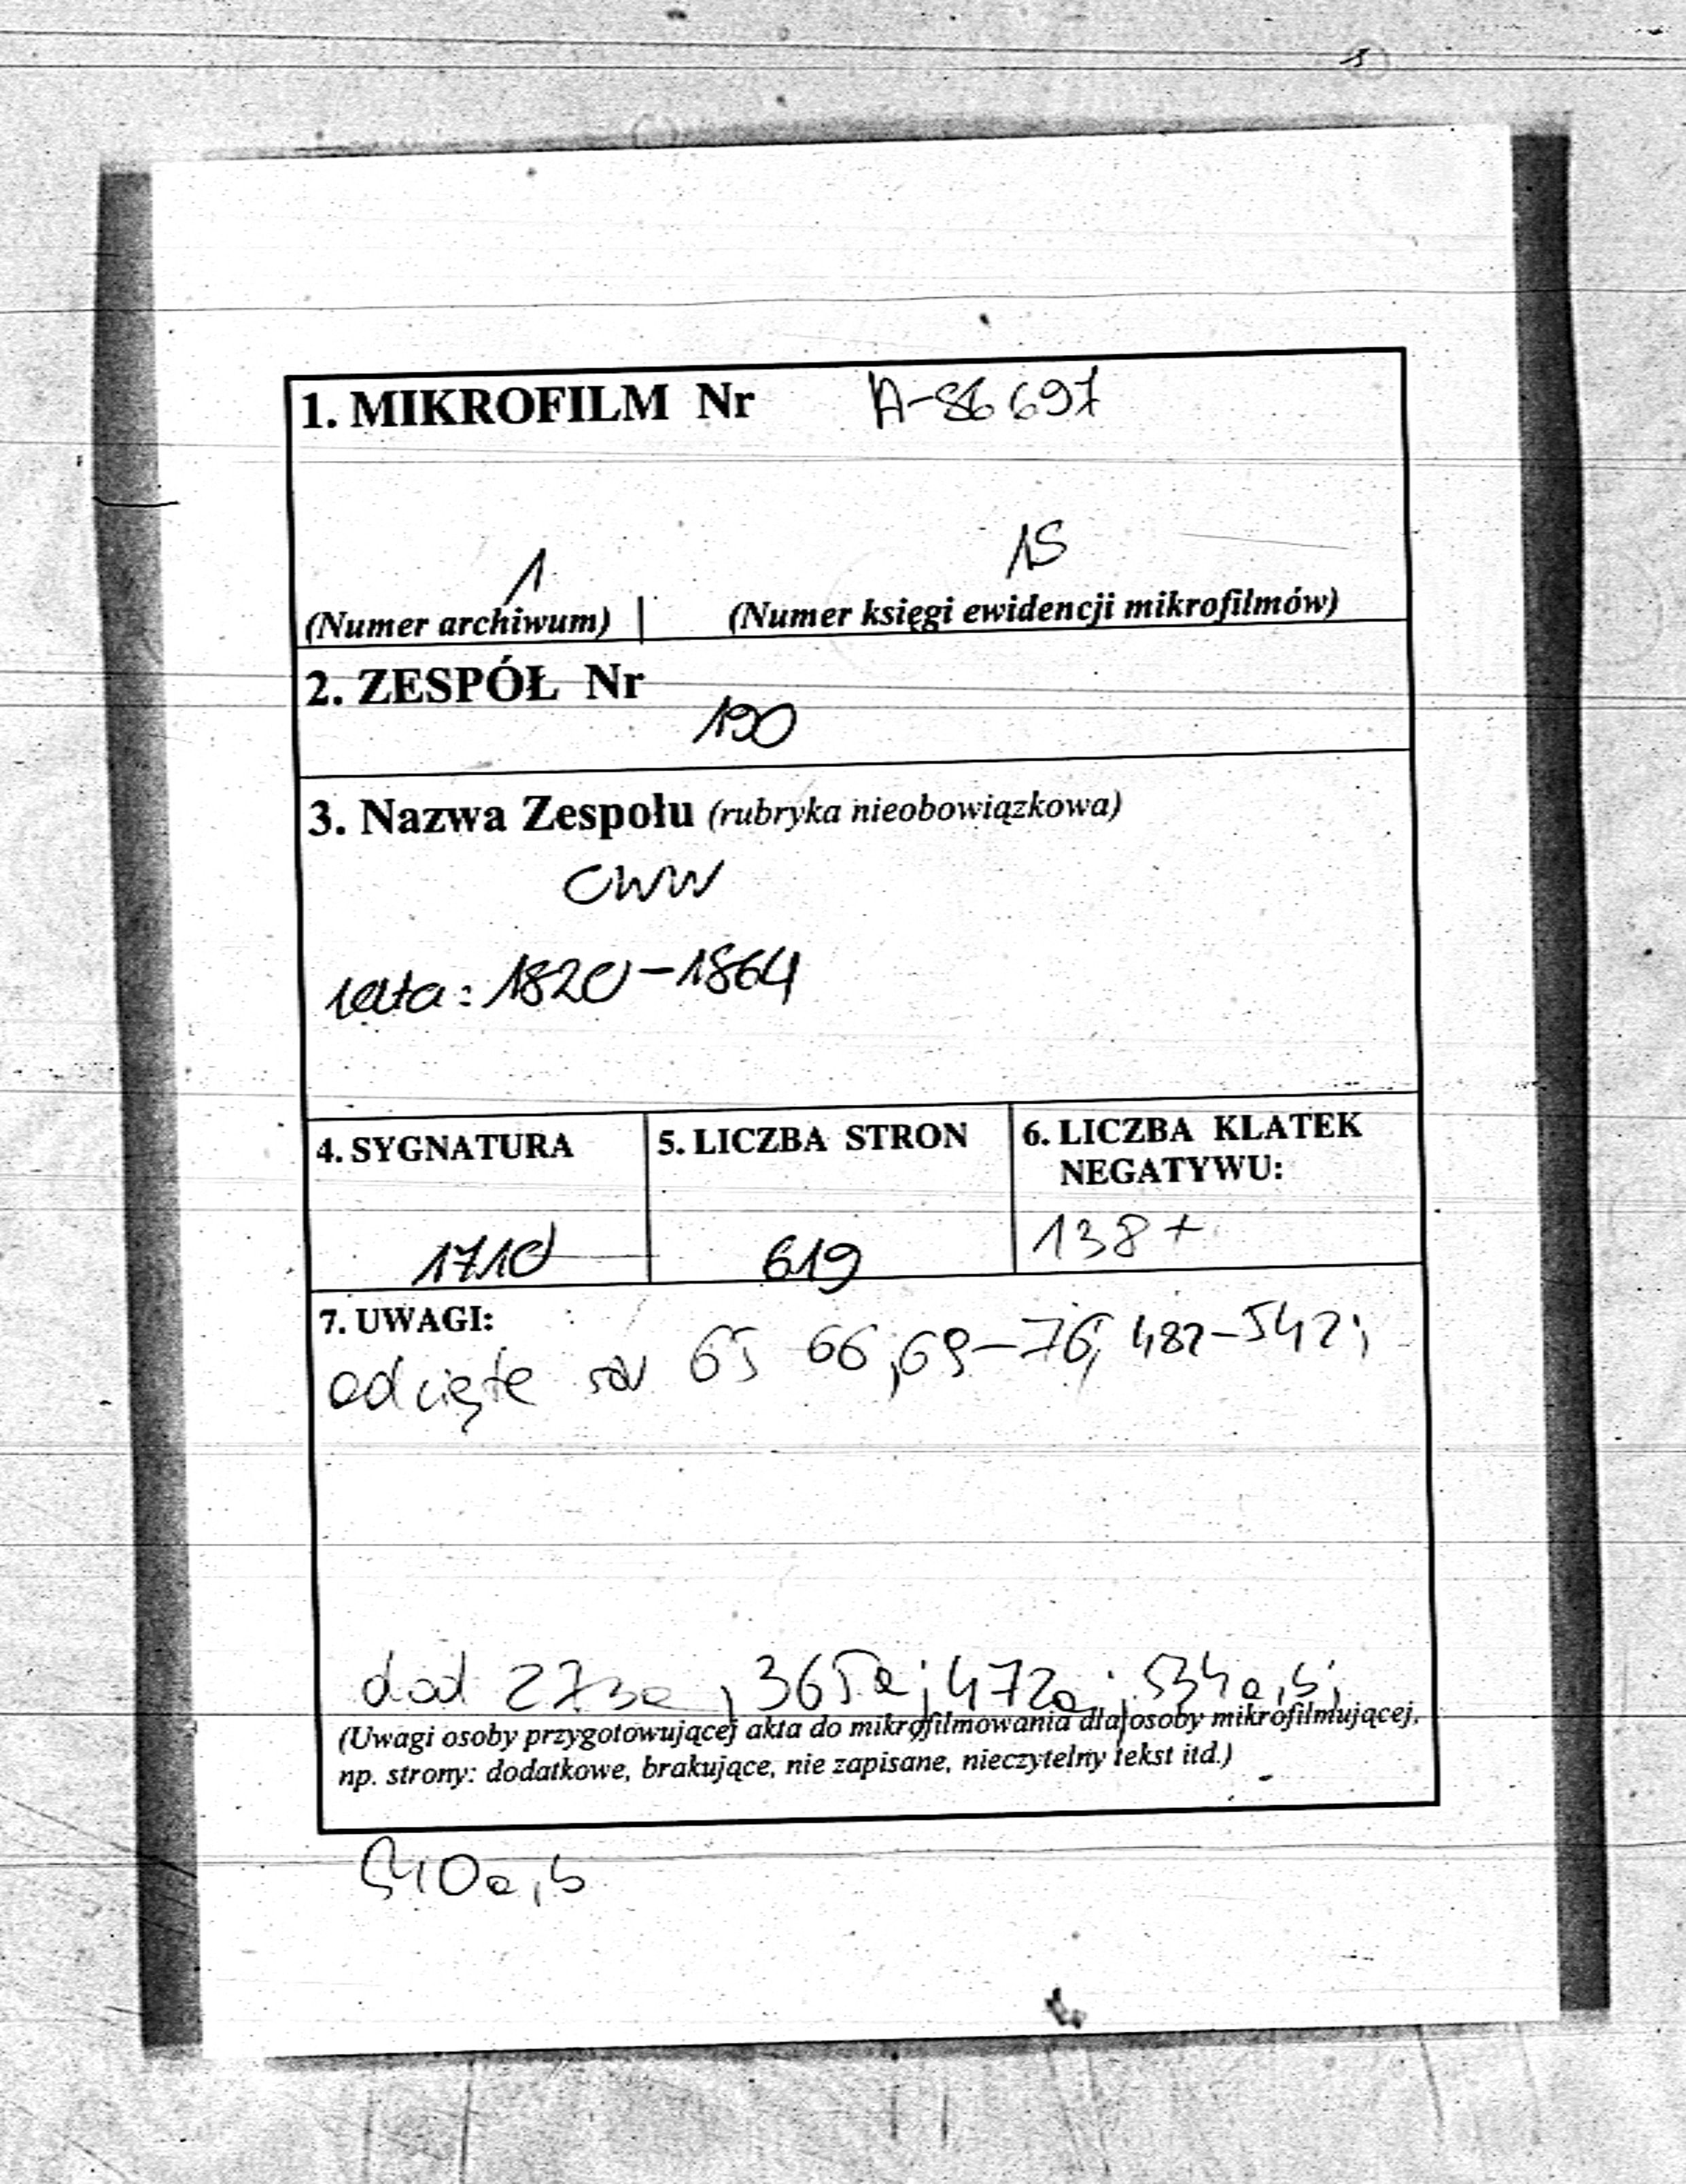 1. MIKROFILM Nr A-86697
1 15
(Numer archiwum) | (Numer księgi ewidencji mikrofilmów)
2. ZESPÓŁ Nr
190
3. Nazwa Zespołu (rubryka nieobowiązkowa)
CWW
lata: 1820-1864
4. SYGNATURA
1710
5. LICZBA STRON
619
6. LICZBA KLATEK
NEGATYWU:
138+
7. UWAGI:
odcięte 65 66, 69-76, 482-542;
dod 273a, 365a; 472a; 534a,b;
(Uwagi osoby przygotowującej akta do mikrofilmowania dla osoby mikrofilmującej,
np. strony: dodatkowe, brakujące, nie zapisane, nieczytelny tekst itd.)
540a,b